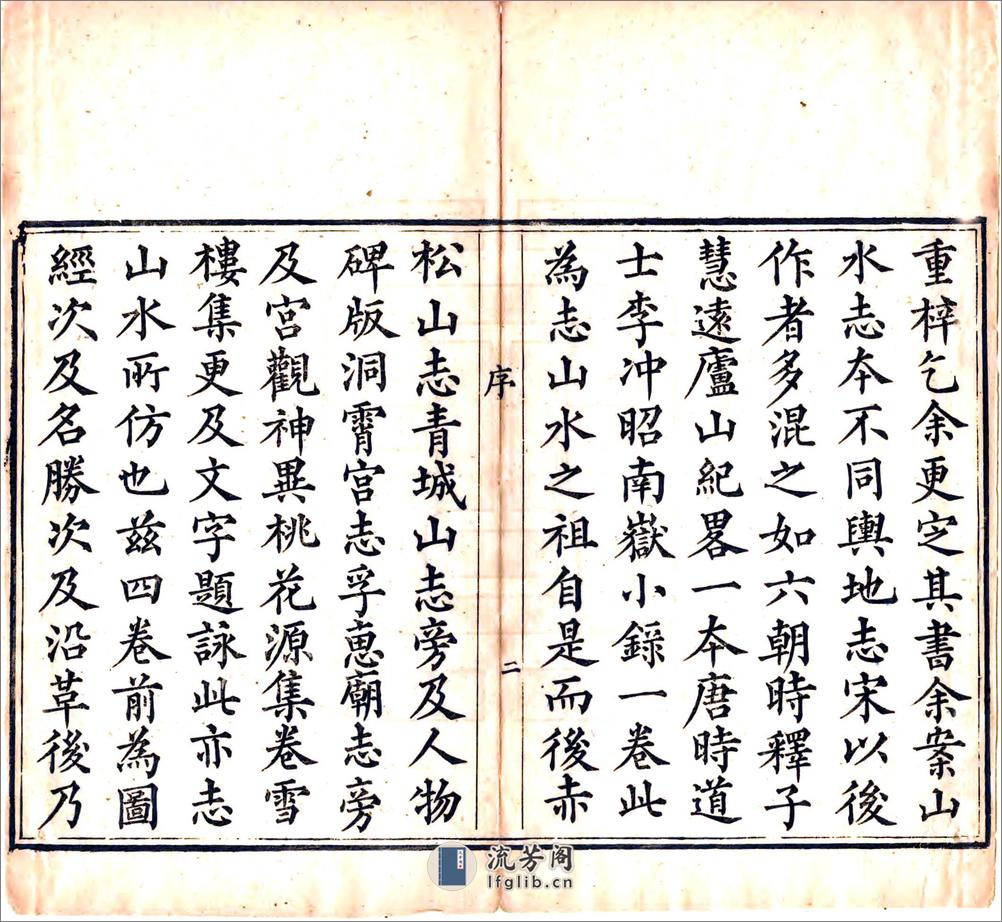 重梓乞余更定其書余案山
水志本不同輿地志宋以後
作者多混之如六朝時釋子
慧遠廬山紀畧一本唐時道
士李冲昭南嶽小錄一卷此
為志山水之祖自是而後赤
序
二
松山志青城山志旁及人物
碑版洞霄宮志孚惠廟志旁
及宮觀神異桃花源集卷雪
樓集更及文字題詠此亦志
山水所仿也兹四卷前為圖
經次及名勝次及沿革後乃
流芳阁
lfglib.cn